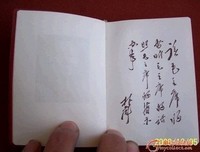 读毛主席的
书听毛主席的话
照毛主席的指示
办事
林彪
2008/12/05